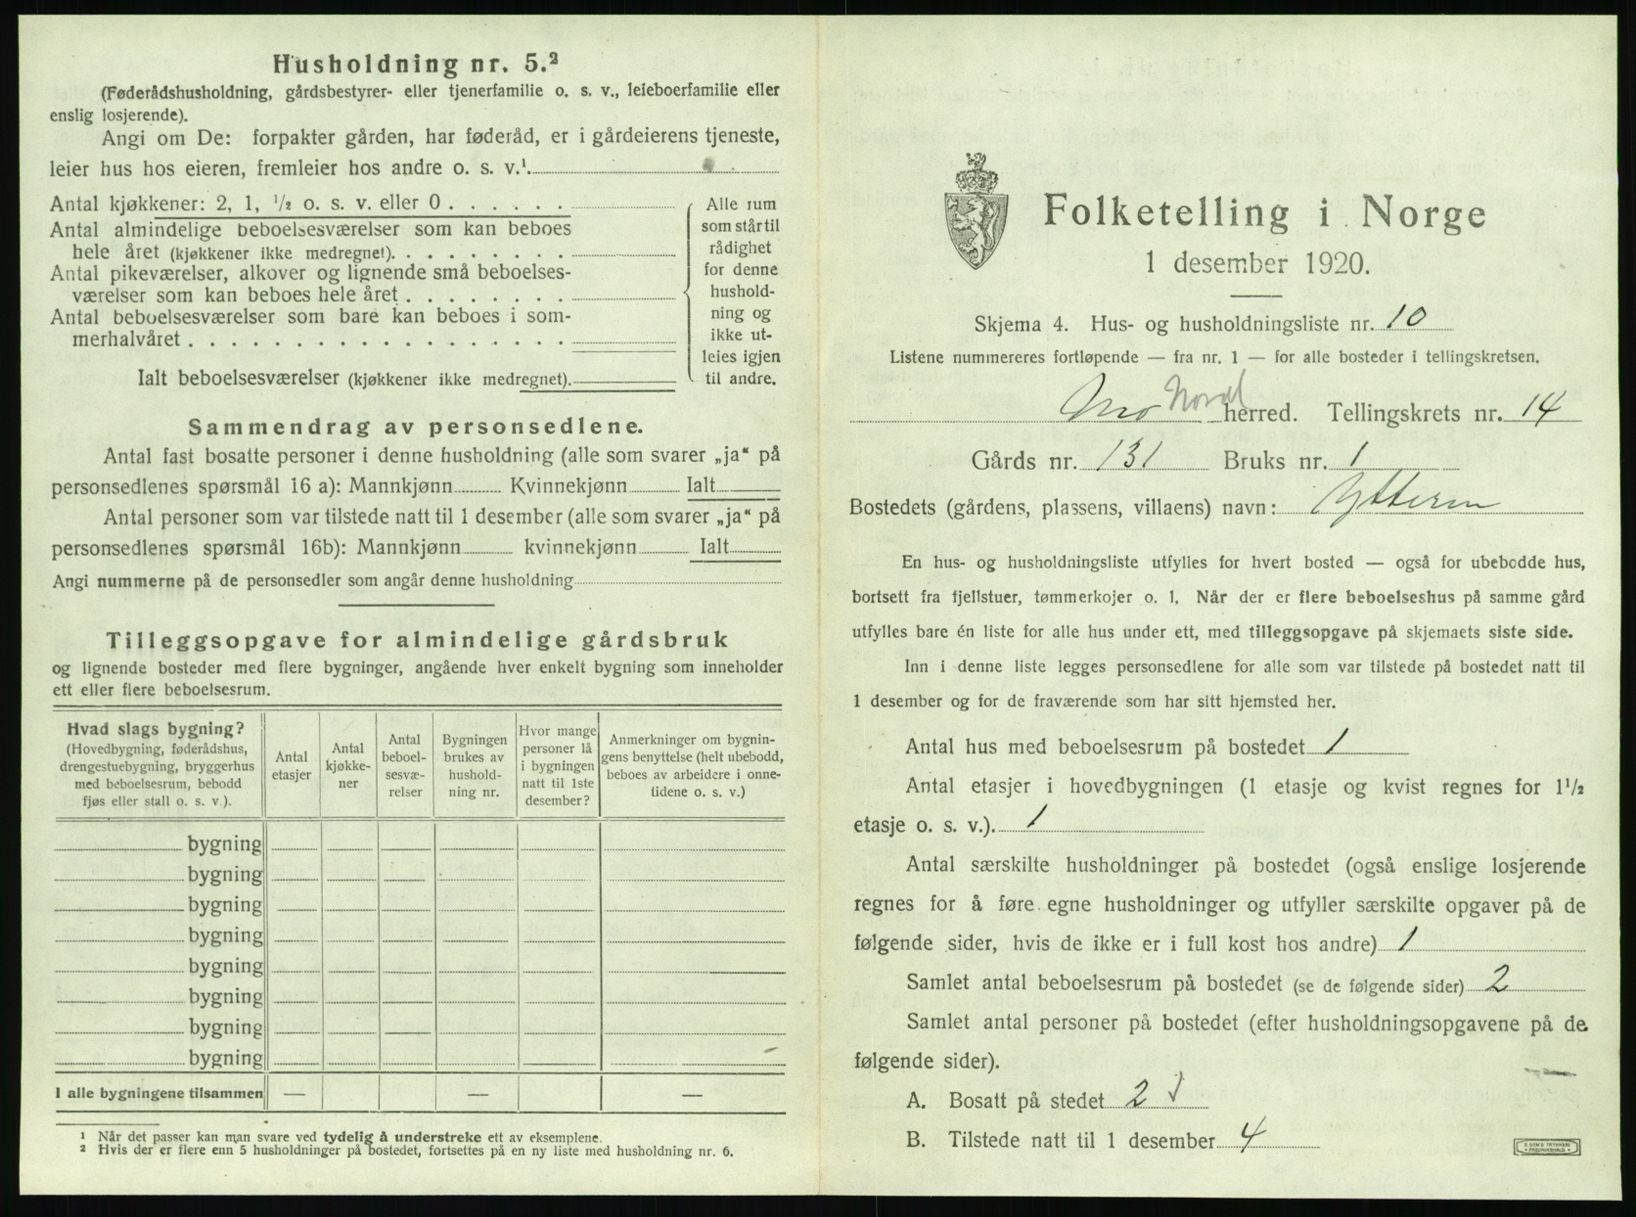 Husholdning nr. 5.²
(Føderådshusholdning, gårdsbestyrer- eller tjenerfamilie o. s. v., leieboerfamilie eller
enslig losjerende).
Angi om De: forpakter gården, har føderåd, er i gårdeierens tjeneste,
leier hus hos eieren, fremleier hos andre o. s. v.¹
Antal kjøkkener: 2, 1, ½ o. s. v. eller 0 . . . . . .
Antal almindelige beboelsesværelser som kan beboes
hele året (kjøkkener ikke medregnet). . . . . . . . .
Antal pikeværelser, alkover og lignende små beboelses-
værelser som kan beboes hele året . . . . . . . .
Antal beboelsesværelser som bare kan beboes i som-
merhalvåret . . . . . . . . . . . . . . . . .
Ialt beboelsesværelser (kjøkkener ikke medregnet).
Alle rum
som står til
rådighet
for denne
hushold-
ning og
ikke ut-
leies igjen
til andre.
Sammendrag av personsedlene.
Antal fast bosatte personer i denne husholdning (alle som svarer „ja“ på
personsedlenes spørsmål 16 a): Mannkjønn Kvinnekjønn Ialt
Antal personer som var tilstede natt til 1 desember (alle som svarer „ja“ på
personsedlenes spørsmål 16b): Mannkjønn kvinnekjønn Ialt
Angi nummerne på de personsedler som angår denne husholdning
Tilleggsopgave for almindelige gårdsbruk
og lignende bosteder med flere bygninger, angående hver enkelt bygning som inneholder
ett eller flere beboelsesrum.
Hvad slags bygning?
(Hovedbygning, føderådshus,
drengestuebygning, bryggerhus
med beboelsesrum, bebodd
fjøs eller stall o. s. v.).
Antal
etasjer
Antal
kjøkke-
ner
Antal
beboel-
sesvæ-
relser
Bygningen
brukes av
hushold-
ning nr.
Hvor mange
personer lå
i bygningen
natt til 1ste
desember?
Anmerkninger om bygnin-
gens benyttelse (helt ubebodd,
beboes av arbeidere i onne-
tidene o. s. v.)
bygning
bygning
bygning
bygning
bygning
bygning
bygning
bygning
I alle bygningene tilsammen — — —
1 Når det passer kan man svare ved tydelig å understreke ett av eksemplene.
2 Hvis der er flere enn 5 husholdninger på bostedet, fortsettes på en ny liste med husholdning nr. 6.
Folketelling i Norge
1 desember 1920.
Skjema 4. Hus- og husholdningsliste nr. 10
Listene nummereres fortløpende — fra nr. 1 — for alle bosteder i tellingskretsen.
Mo Nord herred. Tellingskrets nr. 14
Gårds nr. 131 Bruks nr. 1
Bostedets (gårdens, plassens, villaens) navn: Ytteren
En hus- og husholdningsliste utfylles for hvert bosted — også for ubebodde hus,
bortsett fra fjellstuer, tømmerkojer o. l. Når der er flere beboelseshus på samme gård
utfylles bare én liste for alle hus under ett, med tilleggsopgave på skjemaets siste side.
Inn i denne liste legges personsedlene for alle som var tilstede på bostedet natt til
1 desember og for de fraværende som har sitt hjemsted her.
Antal hus med beboelsesrum på bostedet 1
Antal etasjer i hovedbygningen (1 etasje og kvist regnes for 1½
etasje o. s. v.). 1
Antal særskilte husholdninger på bostedet (også enslige losjerende
regnes for å føre egne husholdninger og utfyller særskilte opgaver på de
følgende sider, hvis de ikke er i full kost hos andre) 1
Samlet antal beboelsesrum på bostedet (se de følgende sider) 2
Samlet antal personer på bostedet (efter husholdningsopgavene på de
følgende sider).
A. Bosatt på stedet 2
B. Tilstede natt til 1 desember 4